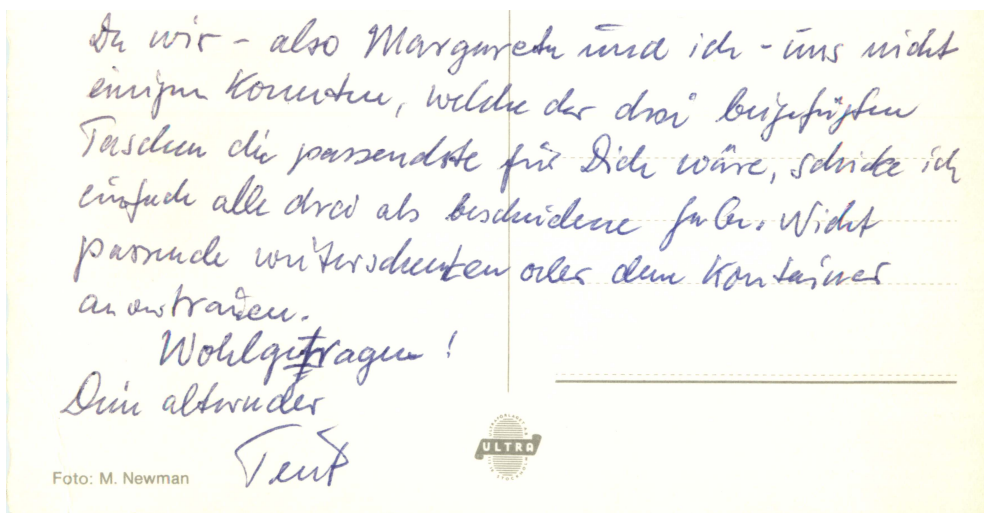 Da wir - also Margarete und ich - uns nicht
einigen konnten, welche der drei beigefügten
Taschen die passendste für Dich wäre, schicke ich
einfach alle drei als bescheidene Gabe. Nicht
passende weiterschenken oder dem Kontainer
anvertrauen.
Wohlgetragen!
Dein alternder
ULTRA
Foto: M. Newman